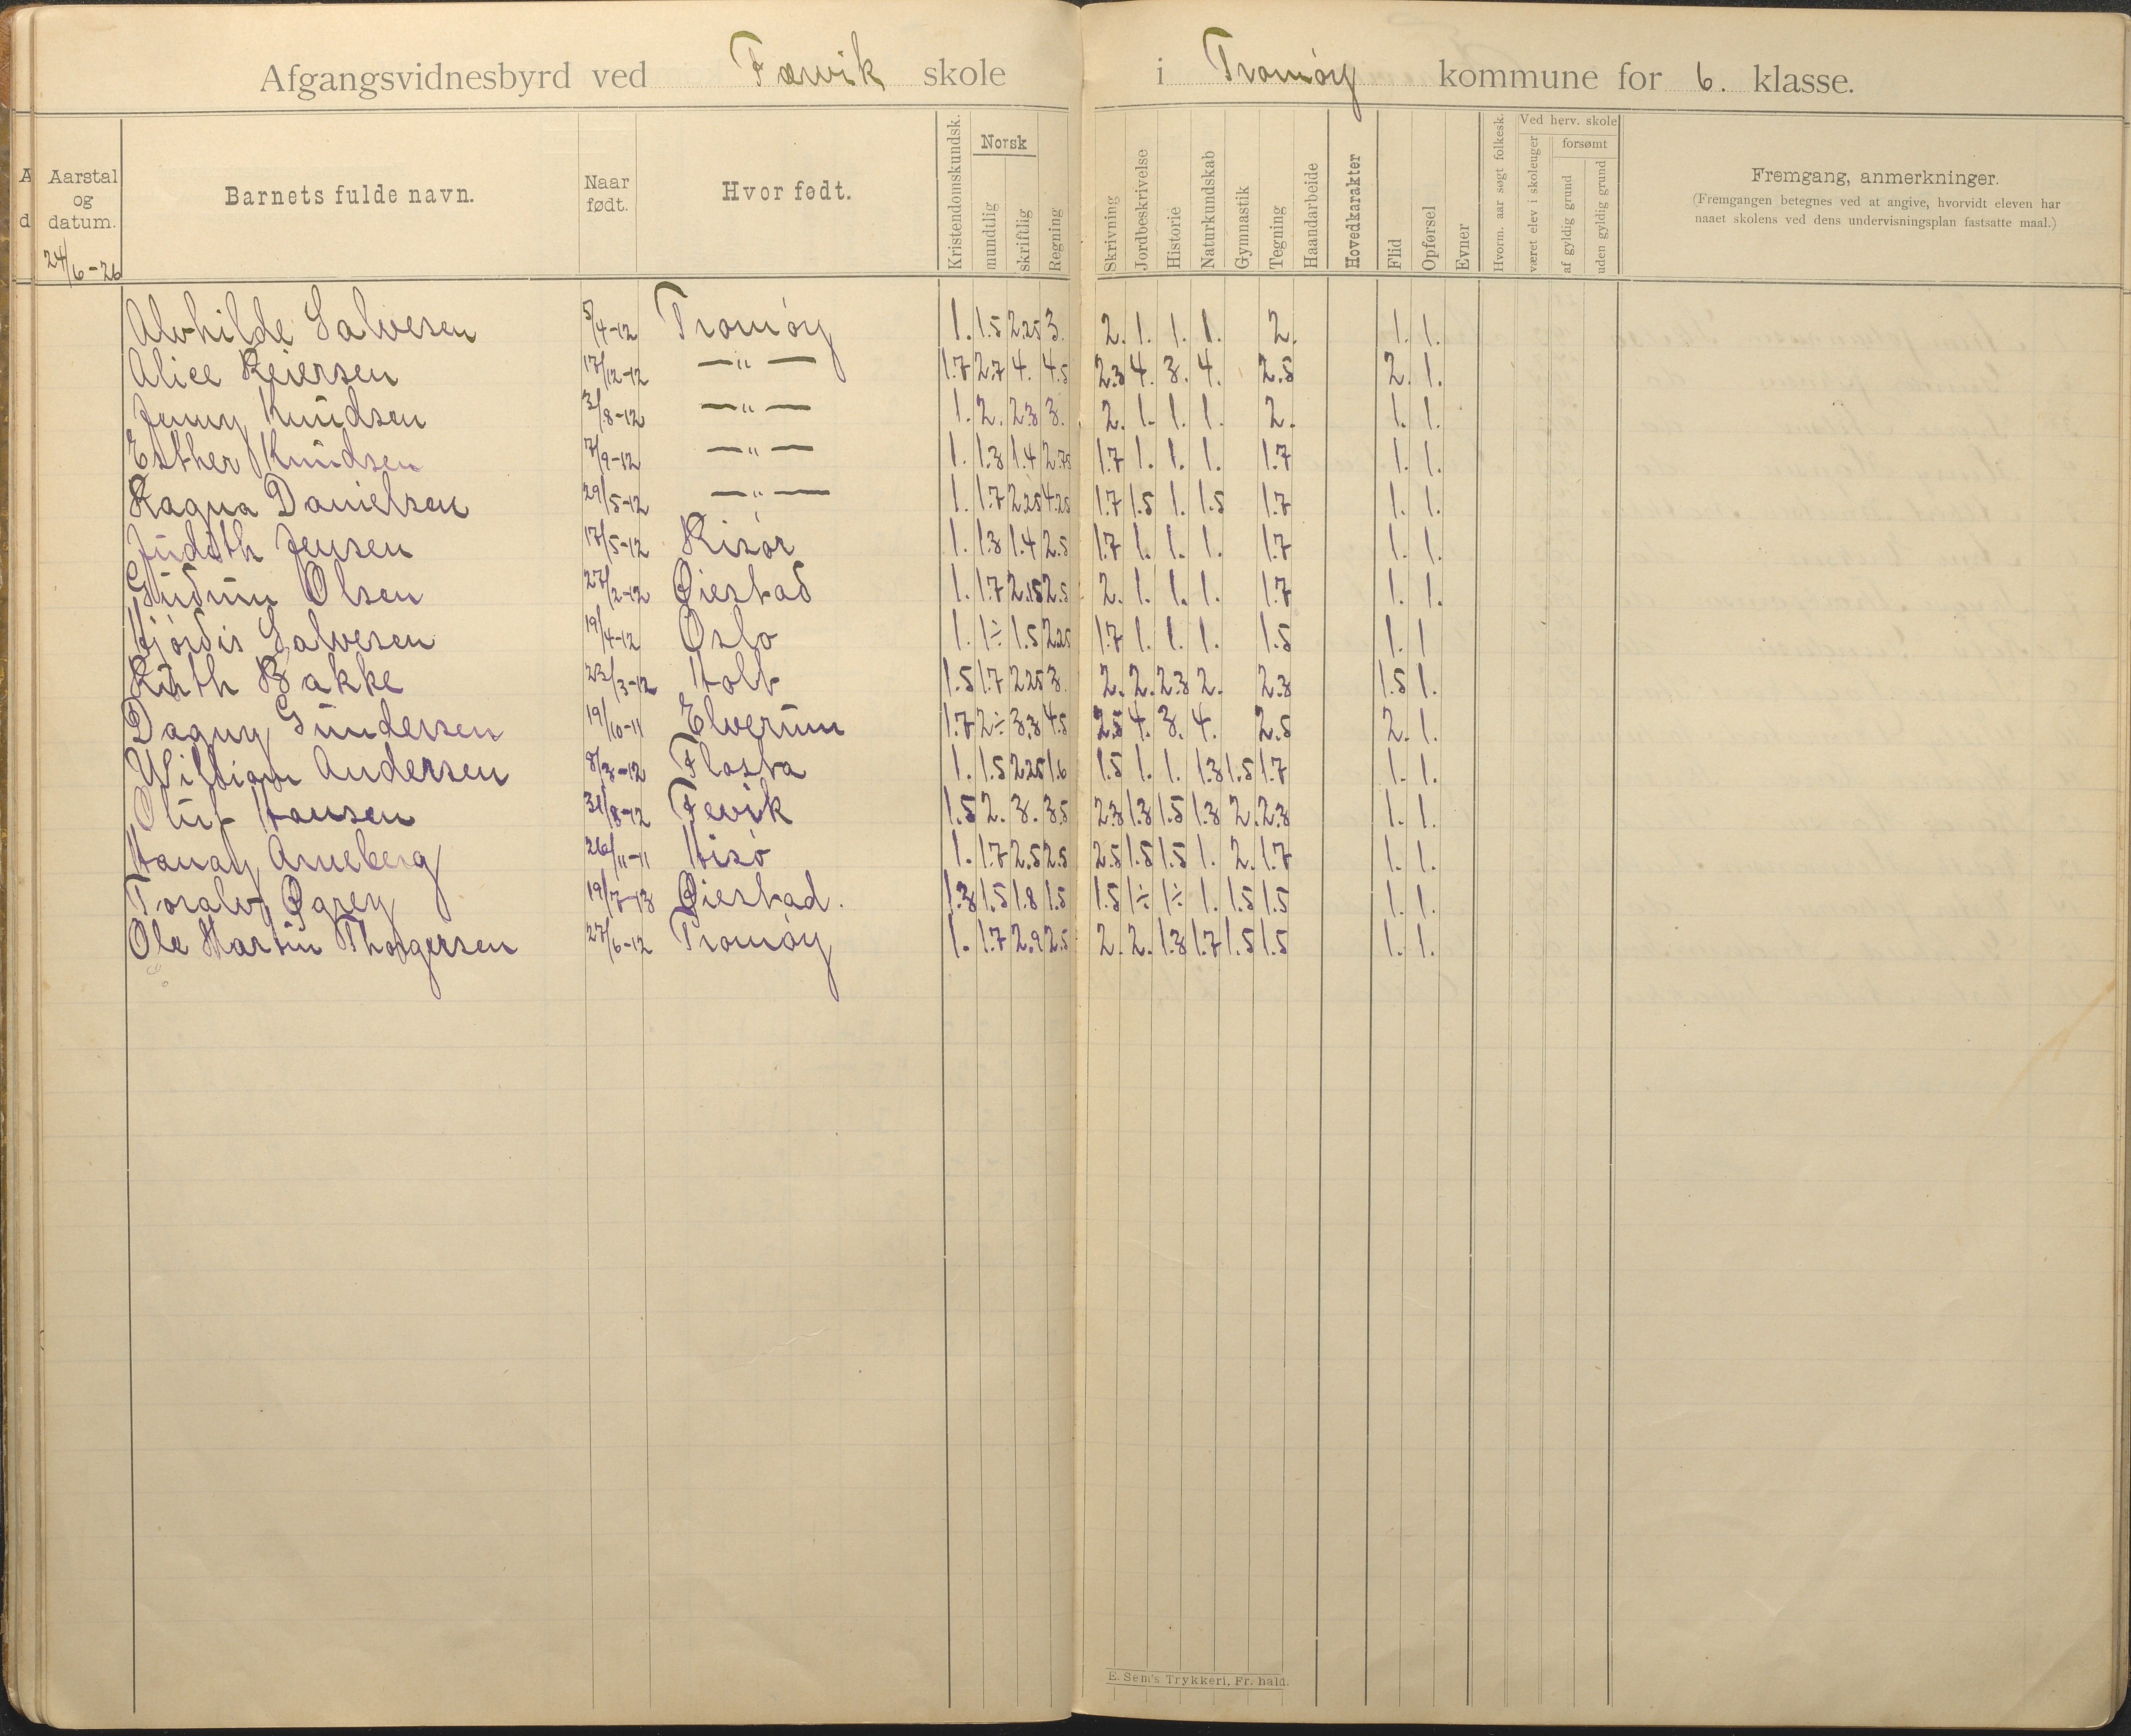 Afgangsvidnesbyrd ved Færvik skole i Tromøy kommune for 6. klasse.
Aarstal og datum.
Barnets fulde navn.
Naar født.
Hvor født.
Kristendomskundsk.
Norsk
mundtlig
skriftlig
Regning
Skrivning
Jordbeskrivelse
Historie
Naturkundskab
Gymnastik
Tegning
Haandarbeide
Hovedkarakter
Flid
Opførsel
Evner
Hvorm. aar søgt folkesk.
Ved herv. skole
været elev i skoleuger
forsømt
af gyldig grund
uden gyldig grund
Fremgang, anmerkninger.
(Fremgangen betegnes ved at angive, hvorvidt eleven har
naaet skolens ved dens undervisningsplan fastsatte maal.)
24/6-26
Alvhilde Salvesen 5/4-12 Tromøy 1. 1.5 2.25 3. 2. 1. 1. 1. 2. 1. 1.
Alice Reiersen 17/12-12 —"— 1.7 2.7 4. 4.5 2.3 4. 3. 4. 2.5 2. 1.
Jenny Knudsen 3/8-12 —"— 1. 2. 2.3 3. 2. 1. 1. 1. 2. 1. 1.
Esther Knudsen 7/9-12 —"— 1. 1.3 1.4 2.75 1.7 1. 1. 1. 1.7 1. 1.
Ragna Danielsen 29/5-12 —"— 1. 1.7 2.25 4.25 1.7 1.5 1. 1.5 1.7 1. 1.
Judith Jensen 17/5-12 Risør 1. 1.3 1.4 2.5 1.7 1. 1. 1. 1.7 1. 1.
Gudrun Olsen 27/2-12 Øiestad 1. 1.7 2.15 2.5 2. 1. 1. 1. 1.7 1. 1.
Hjørdis Salvesen 19/4-12 Oslo 1. 1÷ 1.5 2.25 1.7 1. 1. 1. 1.5 1. 1
Ruth Bakke 23/3-12 Holt 1.5 1.7 2.25 3. 2. 2. 2.3 2. 2.3 1.5 1.
Dagny Gundersen 19/10-11 Elverum 1.7 2÷ 3.3 4.5 2.5 4. 3. 4. 2.5 2. 1.
William Andersen 8/3-12 Flosta 1. 1.5 2.25 1.6 1.5 1. 1. 1.3 1.5 1.7 1. 1.
Oluf Hansen 31/8-12 Fevik 1.5 2. 3. 3.5 2.3 1.3 1.5 1.3 2. 2.3 1. 1.
Arneberg 26/11-11 Hisø 1. 1.7 2.5 2.5 2.5 1.5 1.5 1. 2. 1.7 1. 1.
Toralv Øgrey 19/7-13 Øiestad. 1.3 1.5 1.8 1.5 1.5 1÷ 1÷ 1. 1.5 1.5 1. 1.
Ole Martin Thorgersen 27/6-12 Tromøy 1. 1.7 2.9 2.5 2. 2. 1.3 1.7 1.5 1.5 1. 1.
E. Sem's Trykkeri, Fr. hald.